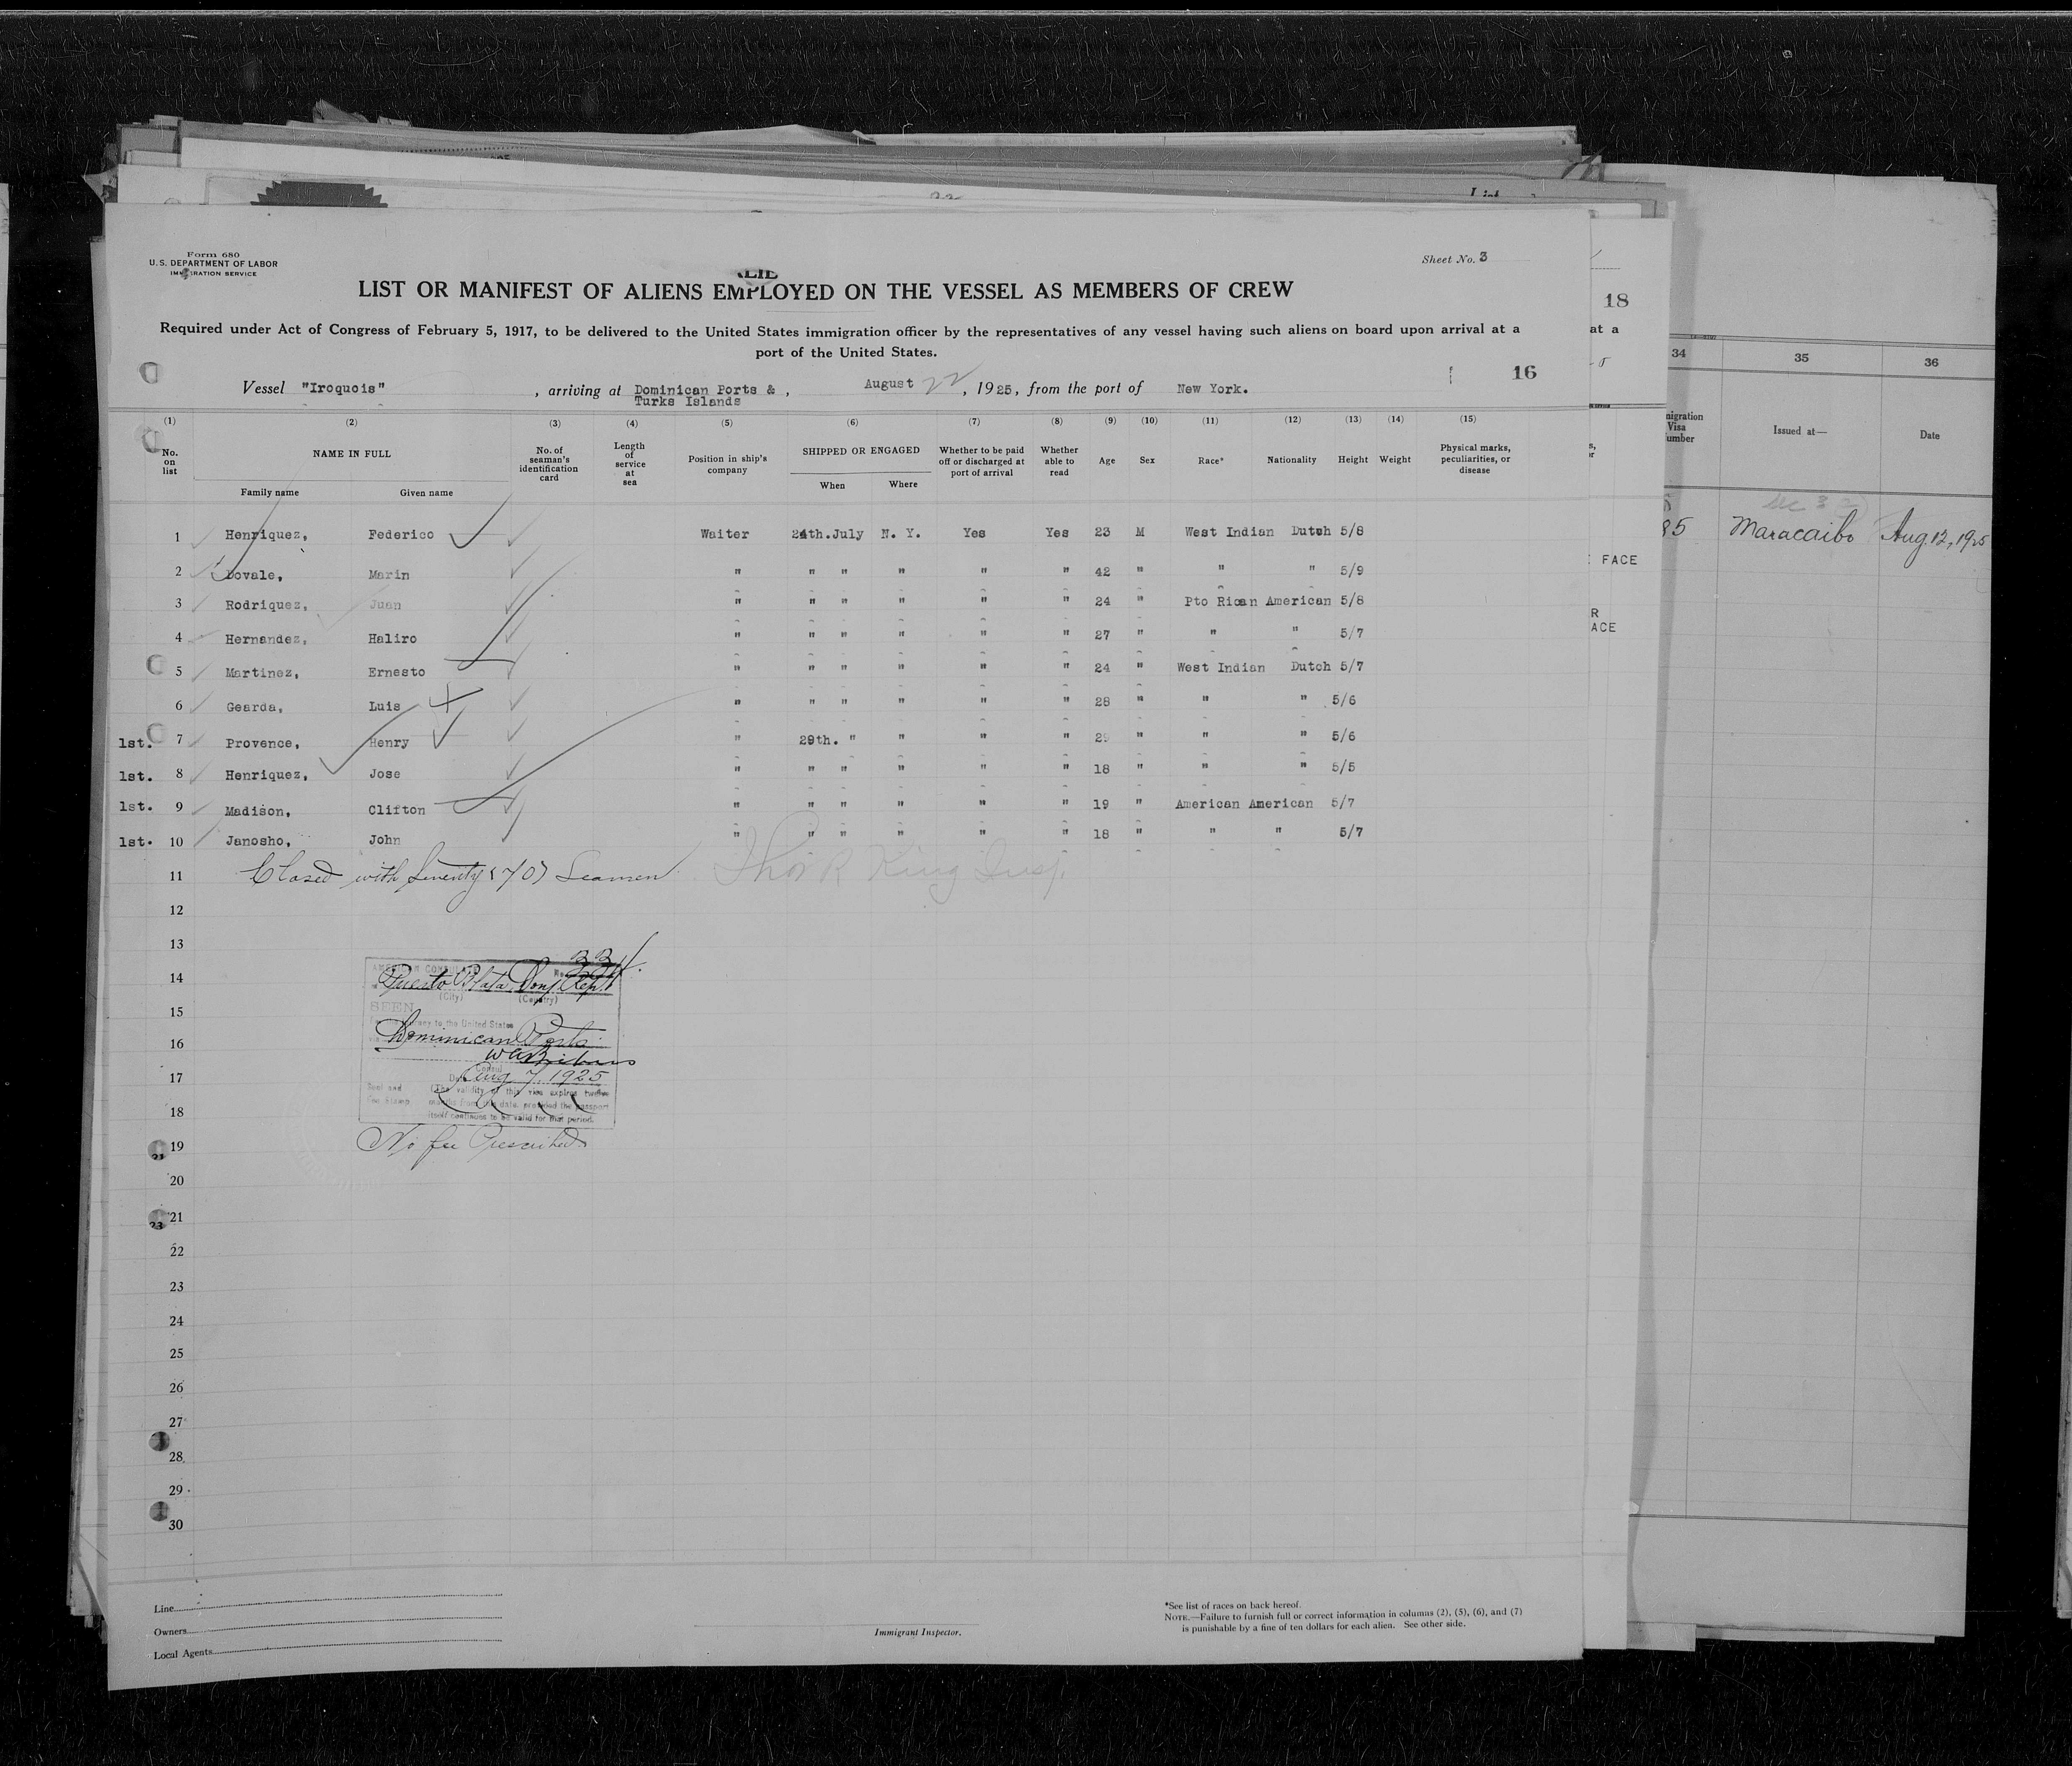 Form 680
U.S. DEPARTMENT OF LABOR
IMMIGRATION SERVICE
Sheet No. 3
LIST OR MANIFEST OF ALIENS EMPLOYED ON THE VESSEL AS MEMBERS OF CREW
18
Required under Act of Congress of February 5, 1917, to be delivered to the United States immigration officer by the representatives of any vessel having such aliens on board upon arrival at a
port of the United States.
at a
16
Vessel "Iroquois" , arriving at Dominican Ports & , August 22 , 1925, from the port of New York.
Turks Islands
(1) (2) (3) (4) (5) (6) (7) (8) (9) (10) (11) (12) (13) (14) (15)
No. on list NAME IN FULL Family name Given name No. of seaman's identification card Length of service at sea Position in ship's company SHIPPED OR ENGAGED When Where Whether to be paid off or discharged at port of arrival Whether able to read Age Sex Race* Nationality Height Weight Physical marks, peculiarities, or disease
34 35 36
Visa Issued at— Date
1 Henriquez, Federico Waiter 24th.July N. Y. Yes Yes 23 M West Indian Dutch 5/8
85 Maracaibo Aug. 12, 1925
2 Dovale, Marin " " " " " " 42 " " " 5/9
FACE
3 Rodriquez, Juan " " " " " " 24 " Pto Rican American 5/8
R
ACE
4 Hernandez, Haliro " " " " " " 27 " " " 5/7
5 Martinez, Ernesto " " " " " " 24 " West Indian Dutch 5/7
6 Gearda, Luis " " " " " " 28 " " " 5/6
1st. 7 Provence, Henry " 29th. " " " " " " " 5/6
1st. 8 Henriquez, Jose " " " " " " 18 " " " 5/5
1st. 9 Madison, Clifton " " " " " " 19 " American American 5/7
1st. 10 Janosho, John " " " " " " 18 " " " 5/7
11 Closed with Seventy (70) Seamen Thos R King Insp.
12
13
14
15
16
17
18
19
20
21
22
23
24
25
26
27
28
29
30
AMERICAN CONSULATE
Puerto Plata, Dom. Rep.
(City) (Country)
SEEN
to the United States
Dominican Ports
Consul
Aug 7, 1925
(The validity of this visa expires twelve
months from this date, provided the passport
itself continues to be valid for that period.
No fee Prescribed
Line
Owners
Local Agents
Immigrant Inspector.
*See list of races on back hereof.
NOTE.—Failure to furnish full or correct information in columns (2), (5), (6), and (7)
is punishable by a fine of ten dollars for each alien. See other side.